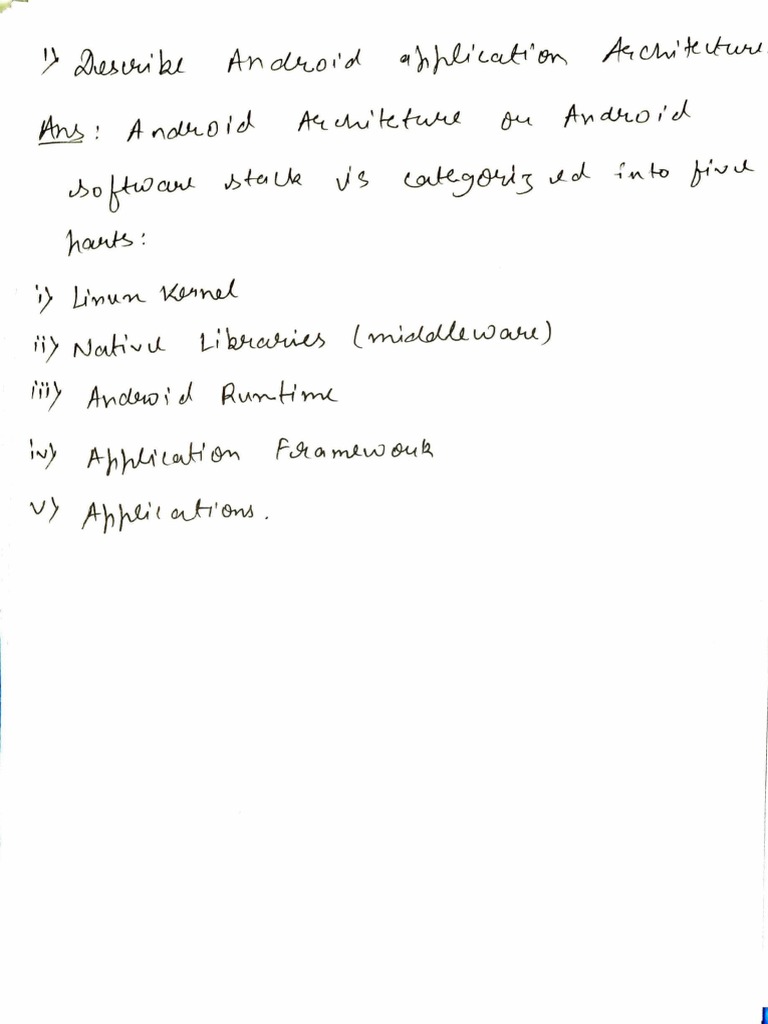 1) Describe Android application Architecture.
Ans: Android Architeture or Android
software stack is categorized into five
parts:
i) Linux Kernel
ii) Native Libraries (middleware)
iii) Android Runtime
iv) Application Framework
v) Applications.